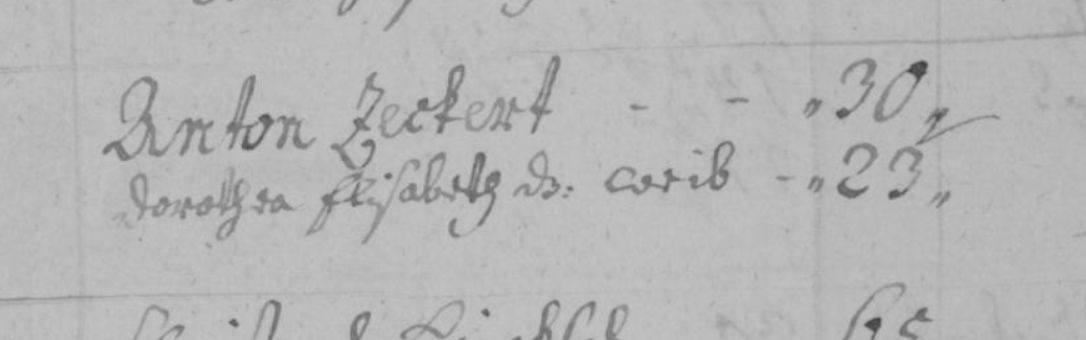 Anton Zeckert - - „ 30 „
dorothea Elisabeth ds: weib - „ 23 „
65